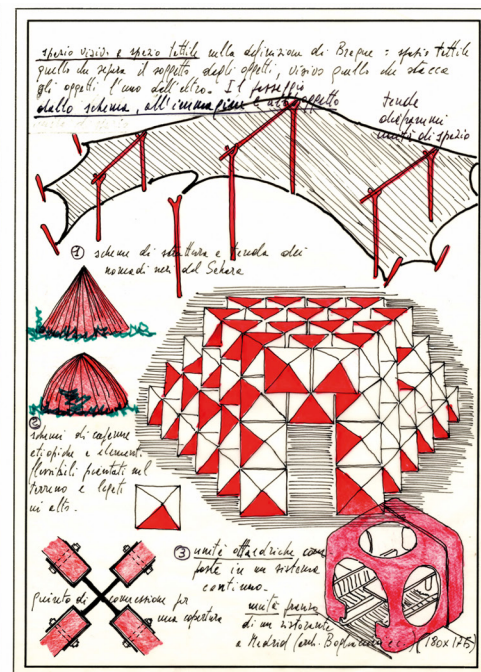 spazio visivo e spazio tattile nella definizione di Braque : spazio tattile
quello che separa il soggetto dagli oggetti, visivo quello che stacca
gli oggetti l'uno dall'altro. Il passaggio
dallo schema, all'immagine e all'oggetto
tende
di spazio
① schema di struttura e tenda dei
nomadi neri del Sahara
②
schemi di capanne
etiopiche e elementi
flessibili piantati nel
terreno e legati
in alto.
③ unità ottaedriche com
poste in un sistema
continuo.
giunto di connessione per
una copertura
unità pranzo
di un ristorante
a Madrid (arch. (180x175)